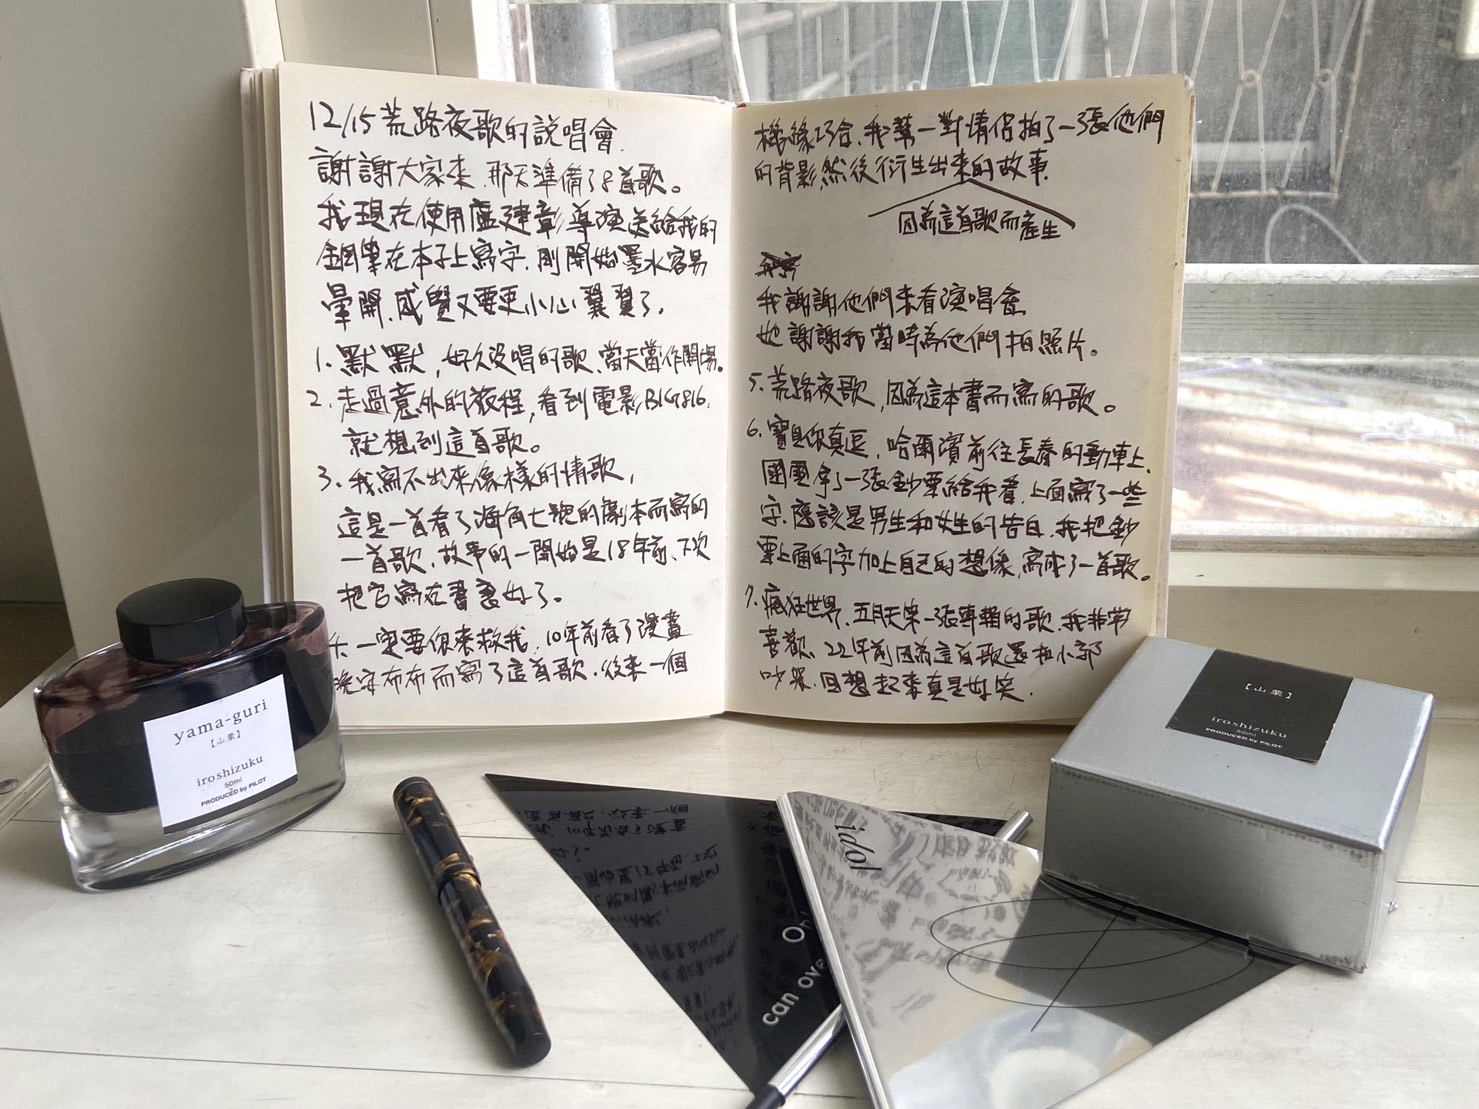 12/15荒路夜歌的說唱會.
謝謝大家來,那天準備了8首歌。
我現在使用盧建彰導演送給我的
鋼筆在本子上寫字,剛開始墨水容易
暈開,感覺又要更小心翼翼了.
1. 默默,好久沒唱的歌,當天當作開場。
2. 走過意外的旅程,看到電影BIG816,
就想到這首歌。
3. 我寫不出來像樣的情歌,
這是一首看了海角七號的劇本而寫的
一首歌,故事的一開始是18年前,下次
把它寫在書裏好了。
4. 一定要你來救我,10年前看了漫畫
晚安布布而寫了這首歌,後來一個
機緣巧合,我幫一對情侶拍了一張他們
的背影然後衍生出來的故事.
因為這首歌而產生
我謝謝他們來看演唱會
她謝謝我當時為他們拍照片。
5. 荒路夜歌,因為這本書而寫的歌。
6. 寶貝你真逗,哈爾濱前往長春的動車上,
團團拿了一張鈔票給我看,上面寫了一些
字,應該是男生和女生的告白,我把鈔
票上面的字加上自己的想像,寫成了一首歌。
7. 瘋狂世界,五月天第一張專輯的歌,我非常
喜歡,22年前因為這首歌還和小郭
吵架,回想起來真是好笑.
yama-guri
【山栗】
iroshizuku
50ml
PRODUCED by PILOT
【山栗】
iroshizuku
50ml
PRODUCED by PILOT
idol
can